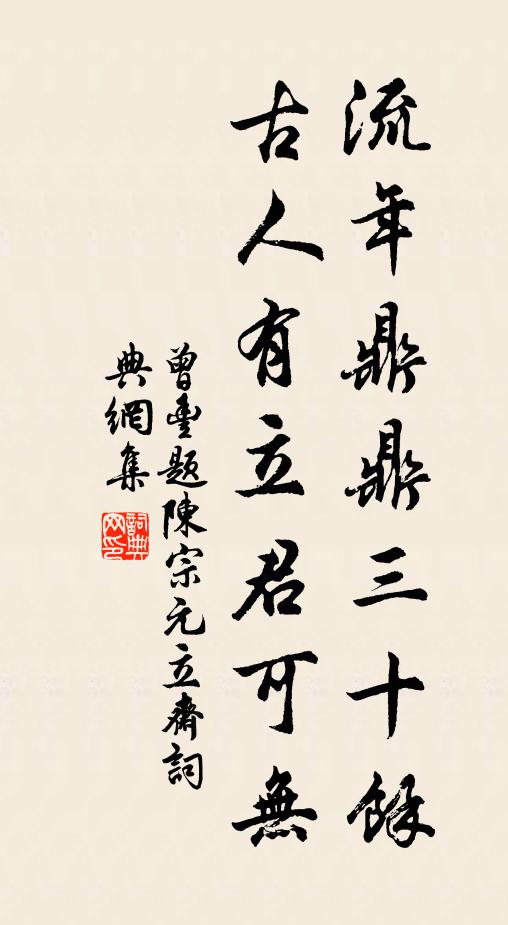 流年鼎鼎三十餘
古人有立君可無
曾豊題陳宗元立齋詞
典網集
詞典网印